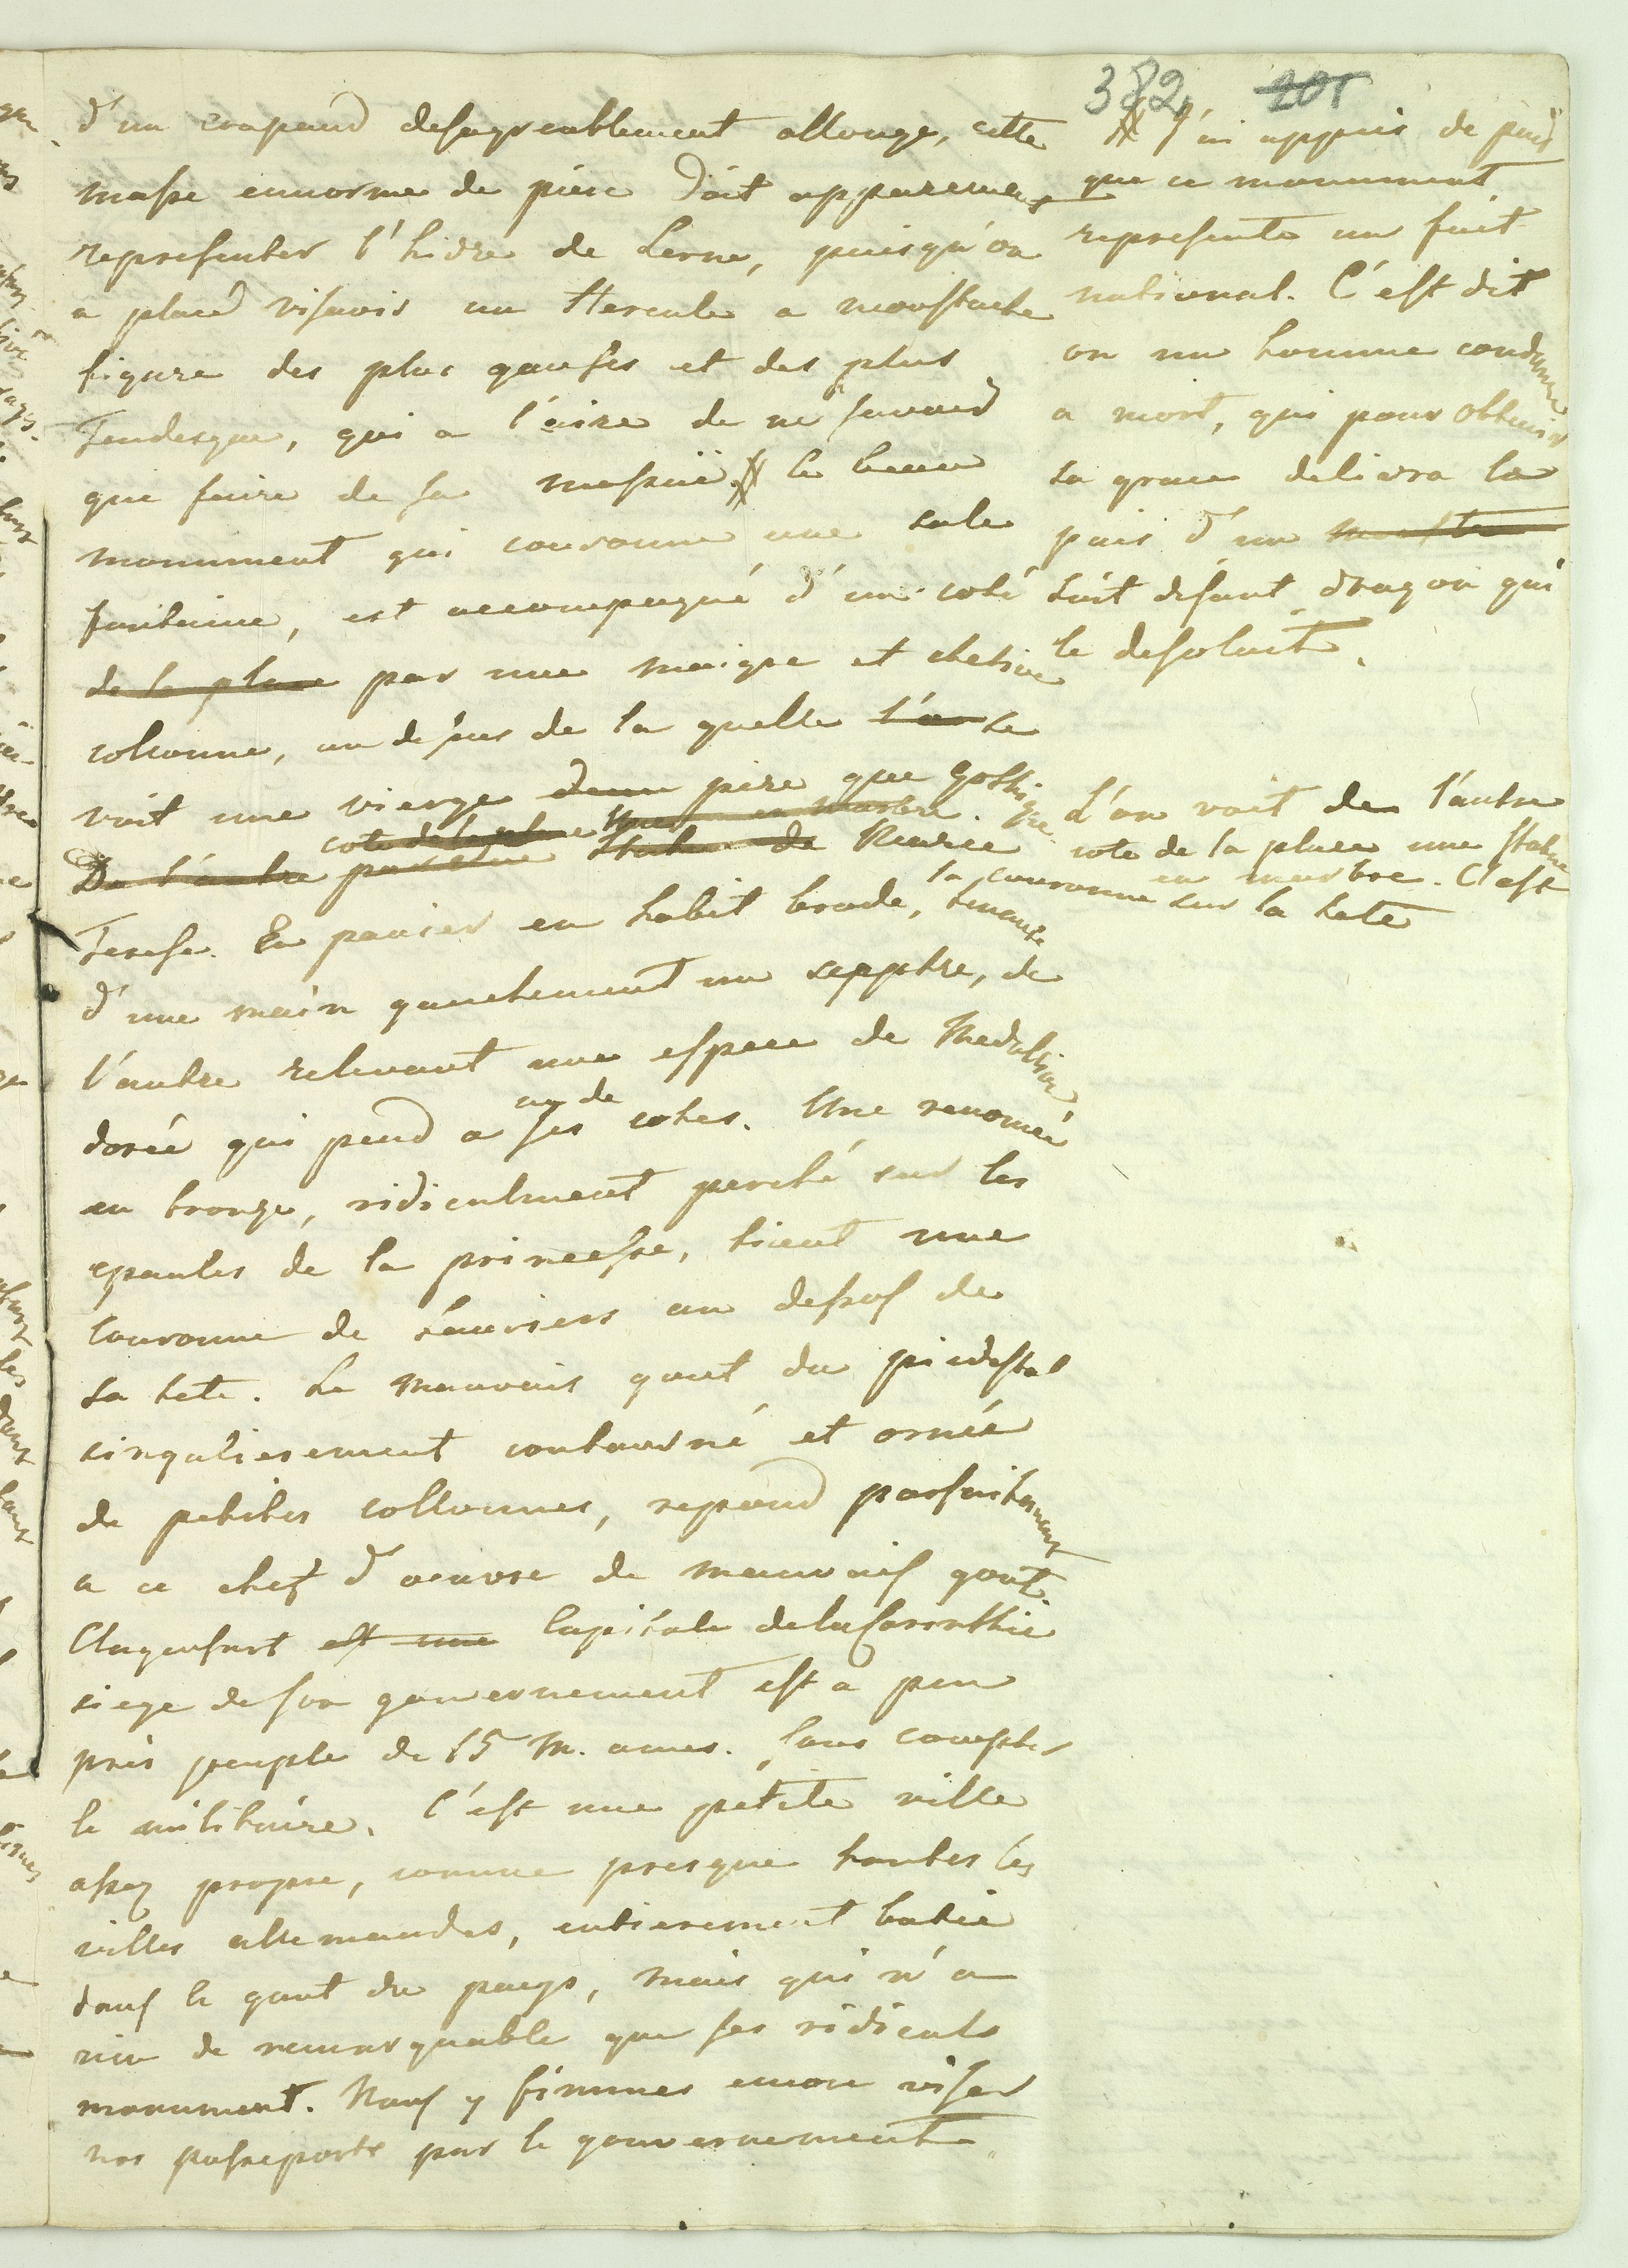 382 201
d'un crapaud desagreablement allongé, cette
masse ennorme de piere doit apparement
representer l'hidre de Lerne, puisqu'on
a placé visavis un Hercule a moustache
figure des plus gaufes et des plus
Tendesque, qui a l'aire de ne savoir
que faire de sa massüe. # Ce beau
monument qui couronne une sale
fontaine, est accompagné d'un coté
de la place par une maigre et chetive
collonne, au dessus de la quelle l'on se
voit une vierge d'un pire que gothique
coté de la place une en marbre.
De l'autre par une Statue de Marie
Terese. En panier en habit brodé, tenante
la couronne sur la tete
d'une main gauchement un sepptre, de
l'autre relevant une espece de Medallion
dorée qui pend a un de ses cotes. Une renomée
en bronze, ridiculment perché sur les
epaules de la princesse, tient une
couronne de Lauriers au dessus de
sa tete. Le mauvais gout du piedestal
singulierement contourné et ornée
de petites collonnes, repond parfaitement
a ce chef d'oeuvre de mauvais gout.
Clagenfurt est une Capitale de la Carinthie
siege de son gouvernement est a peu
près peuple de 15 M. ames. Sans compter
le militaire. C'est une petite ville
assez propre, comme presque toutes les
villes allemandes, entierement batie
dans le gout du pays, mais qui n'a
rien de remarquable que ses ridicule
monument. Nous y fimmes encore viser
nos passeports par le gouvernement.
# J'ai appris de puis
que ce monument
represente un fait
national. C'est dit
on un homme condamné
a mort, qui pour obtenir
sa grace delivra le
pais d'un monstre
soit disant dragon qui
le desolait.
L'on voit de l'autre
coté de la place une statue
en marbre. C'est